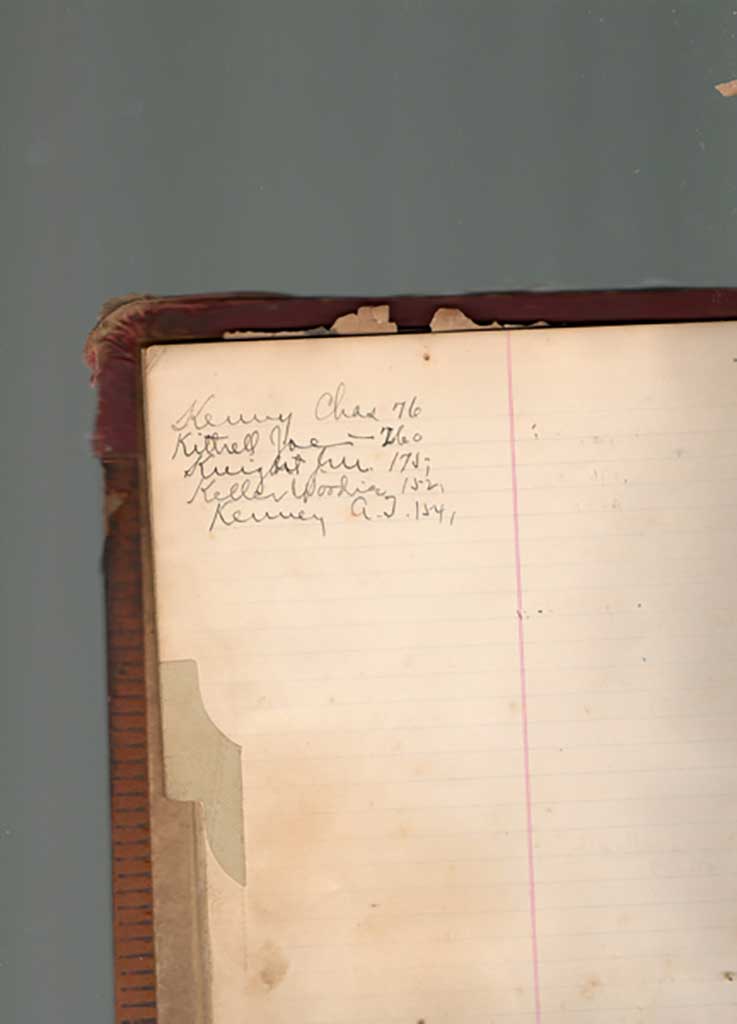 Kenny Chas 76
Kittrell Joe — 260
Knight 175,
Keller Woodie, 152,
Kenney A.J. 154,